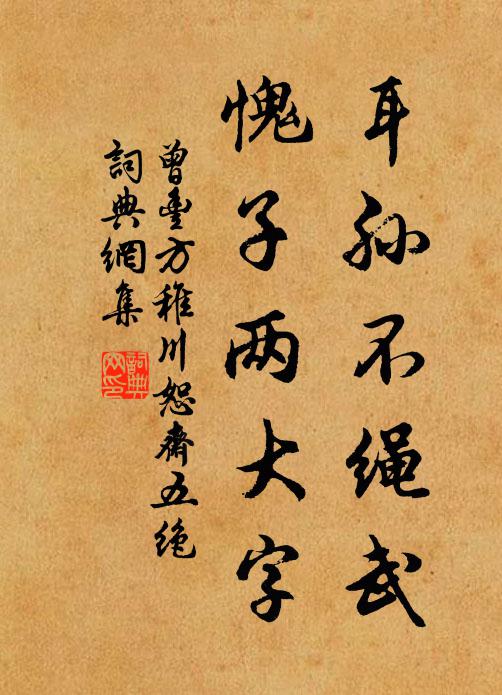 耳孙不绳武
愧子两大字
曾豊方稚川恕齋五絶
詞典網集
詞典网印